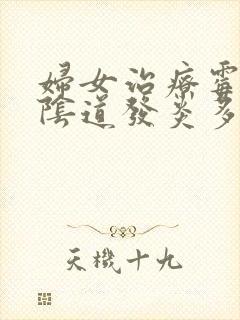 婦女治療霉
陰道發炎多
天機十九